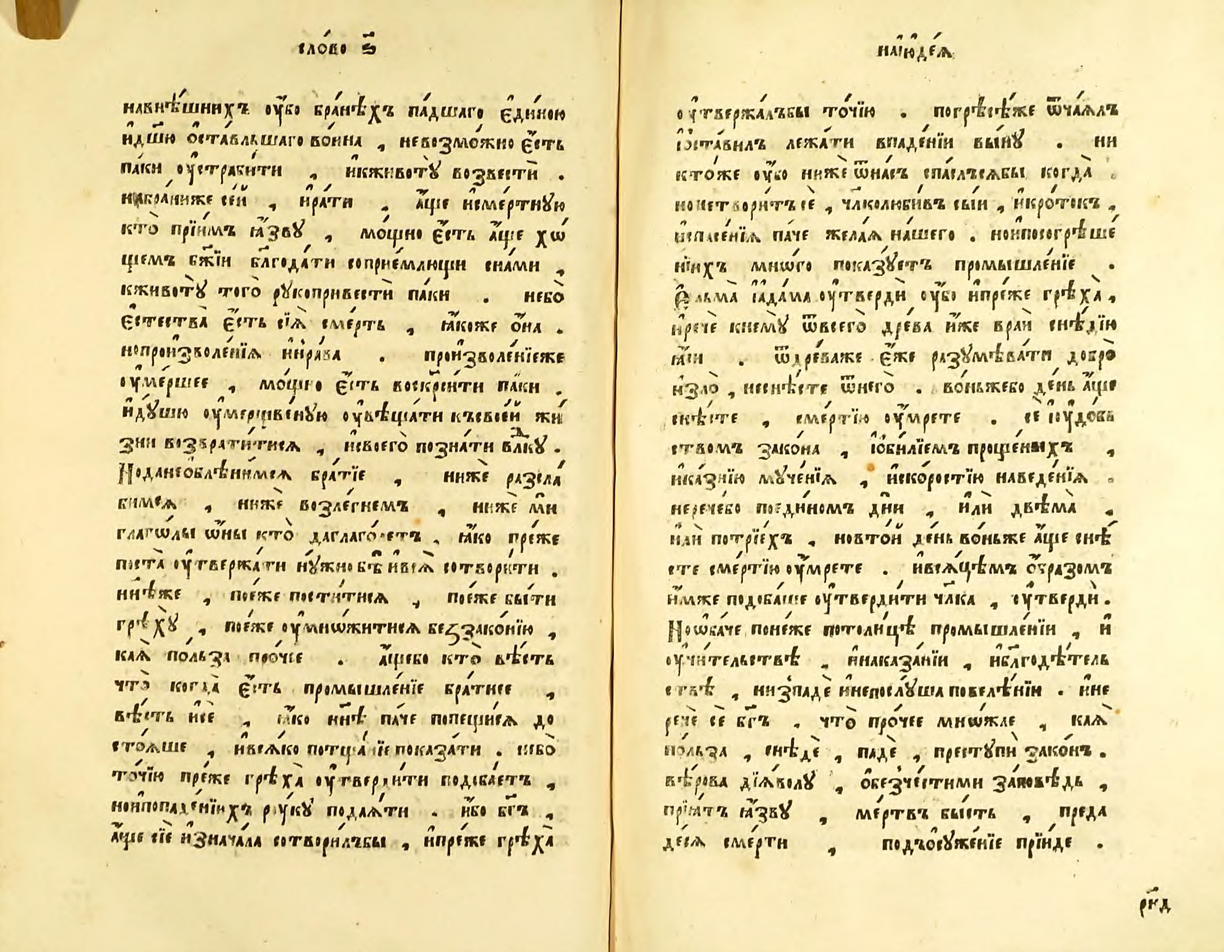 сло́во ѕ҃
навнѣ́шнихъ ᲂу҆́бо бра́нѣхъ па́дшаго є҆ди́ною
и҆дш҃ю ѡ҆ста́вльшаго во́ина , невозмо́жно є҆́сть
па́ки ᲂу҆стра́бити , икживотꙋ̀ возвестѝ .
набра́ниже се́й , и҆ра́ти . а҆́ще исме́ртнꙋю
кто̀ прїи́мъ ꙗ҆́звꙋ , мо́щно є҆́сть а҆́ще хо́
щемъ бж҃їи бл҃года́ти соприе́млющи сна́ми ,
кживотꙋ̀ того̀ рꙋкопривестѝ па́ки . небо̀
є҆стества̀ є҆́сть сїѧ̀ сме́рть , ꙗ҆́коже ѻ҆на̀ .
нопроизволе́нїѧ и҆нра́ва . произволе́нїеже
ᲂу҆ме́ршее , мо́щно є҆́сть воскр҃си́ти па́ки .
и҆дꙋ́шꙋю ᲂу҆мерщве́нꙋю ᲂу҆вѣща́ти късвое́й жи́
зни возврати́тисѧ , исвоего̀ позна́ти влⷣкꙋ .
Нодане ѡ҆блѣни́мсѧ бра́тїе , нижѐ разсла́
бимсѧ , нижѐ возлѧ́гнемъ , нижѐ мѝ
глаго́лы ѡ҆́ны кто̀ даглаго́летъ . ꙗ҆́ко пре́же
поста̀ ᲂу҆твержа́ти нꙋ́жно бѣ̀ ивсѧ̀ сотвори́ти .
нн҃ѣже , пое́же пости́тисѧ , пое́же бы́ти
грѣхꙋ̀ , пое́же ᲂу҆мно́житисѧ беззако́нїю ,
ка́ѧ по́льза про́чее . а҆́щебо кто̀ вѣ́сть
что̀ когда̀ є҆́сть промышле́нїе бра́тнее ,
вѣ́сть исѐ , ꙗ҆́ко нн҃ѣ па́че попещи́сѧ до
сто́ѧше , ивсѧ́ко потща́нїе показа́ти . небо̀
то́чїю пре́же грѣха̀ ᲂу҆тверди́ти подоба́етъ ,
ноипопаде́нїихъ рꙋ́кꙋ пода́ѧти . и҆́бо бг҃ъ ,
а҆́ще сїѐ и҆знача́ла сотвори́лъбы , и҆пре́же грѣха̀
наі҆ꙋде́ѧ
ᲂу҆твержа́лъбы то́чїю . погрѣ́сѣже ѿча́ѧлъ
і҆ѡ҆ста́вилъ лежа́ти впаде́нїи вы́нꙋ . ни
кто́же ᲂу҆́бо нижѐ ѿна́съ спа́слъсѧбы когда̀ .
нонетвори́тъ сѐ , чл҃колюби́въ сы́и , и҆кро́токъ ,
и҆спасе́нїѧ па́че жела́ѧ на́шего . ноипосогрѣше́
нїихъ мно́го показꙋ́етъ промышле́нїе .
Є҆льма̀ і҆а҆да́ма ᲂу҆твердѝ ᲂу҆́бо и҆пре́же грѣха̀ ,
и҆речѐ кнемꙋ̀ ѿвсего̀ дре́ва и҆́же враѝ снѣ́дїю
ꙗ҆́си . ѿдре́важе є҆́же разꙋмѣва́ти добро̀
изло̀ , неснѣ́сте ѿнего̀ . во́ньжебо де́нь а҆́ще
снѣ́сте , сме́ртїю ᲂу҆́мрете . сѐ іᲂу҆до́бь
ствомъ зако́на , і҆ѡ҆би́лїемъ проще́ныхъ ,
иказнїю мꙋче́нїѧ , и҆ско́ростїю наведе́нїѧ .
неречѐбо поеди́номъ дн҃и , и҆лѝ двѣма̀ ,
и҆лѝ потрїе́хъ , новто́й де́нь во́ньже а҆́ще снѣ́
сте сме́ртїю ᲂу҆́мрете . ивсѧ́цѣмъ ѻ҆́бразомъ
и҆́мже подоба́ше ᲂу҆тверди́ти чл҃ка , ᲂу҆твердѝ .
Нооба́че поне́же потоли́цѣ промышле́нїи , и҆
ᲂу҆чи́тельствѣ , и҆наказа́нїи , и҆бл҃годѣ́тель
ствѣ , низпадѐ и҆непослꙋ́ша повелѣ́нїи . и҆не
речѐ сѐ бг҃ъ . что̀ про́чее мно́жае , ка́ѧ
по́льза , снѣдѐ , падѐ , престꙋпѝ зако́н .
вѣ́рова дїѧ́волꙋ , ѡ҆безче́стими за́повѣдь ,
прїѧ́тъ ꙗ҆́звꙋ , ме́ртвъ бы́сть , преда
де́сѧ сме́рти , подъѡ҆сꙋже́нїе прїи́де .
рк҃д